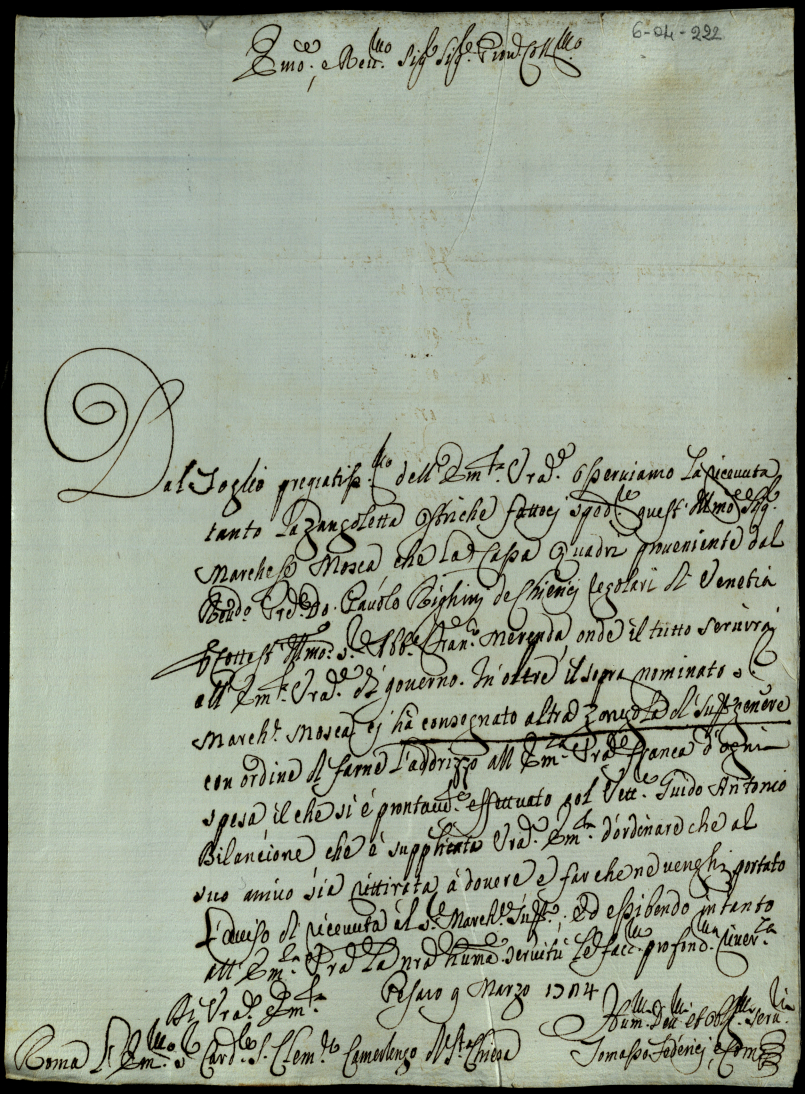 6-04-222
Emo., e Reu.mo Sig.r Sig.r Pron. Coll.mo
Dal Foglio pregiatiss.mo dell'Em.za Vra.
osseruiamo la riceuuta
tanto la zangoletta ostriche fattoci quest'Illmo Sig.
Marchese Mosca che la Cassa Quadri proueniente dal
Reudo. Pre. Do. Pauolo Righini de Chierici Regolari di Venetia
Illmo. S. Abb. Fran. Merenda onde il tutto seruirà
all'Em.za Vra. di gouerno. In oltre il sopra nominato S.
March. Mosca ci hà consegnato altra Zangola di suss. genere
con ordine di farne l'addrizzo all'Em.za Vra. franca d'ogni
spesa il che si è prontam.te effettuato col Vett.e Guido Antonio
Bilancione che è supplicata Vra. Em.za d'ordinare che al
suo ariuo sia rittirata à douere e far che ne venghi portato
l'auuiso di riceuuta al S. March. suss.o, ed essibendo intanto
all'Em.za Vra. la nra hume seruitù le facc. profond. riuer.za
Di Vra. Em.za Pesaro 9 Marzo 1784
Hum. Deu. et Obl. Seru.
Roma Em.mo S. Card.le S. Clem.te Camerlengo di S.ta Chiesa Tomasso Federici, e Com.